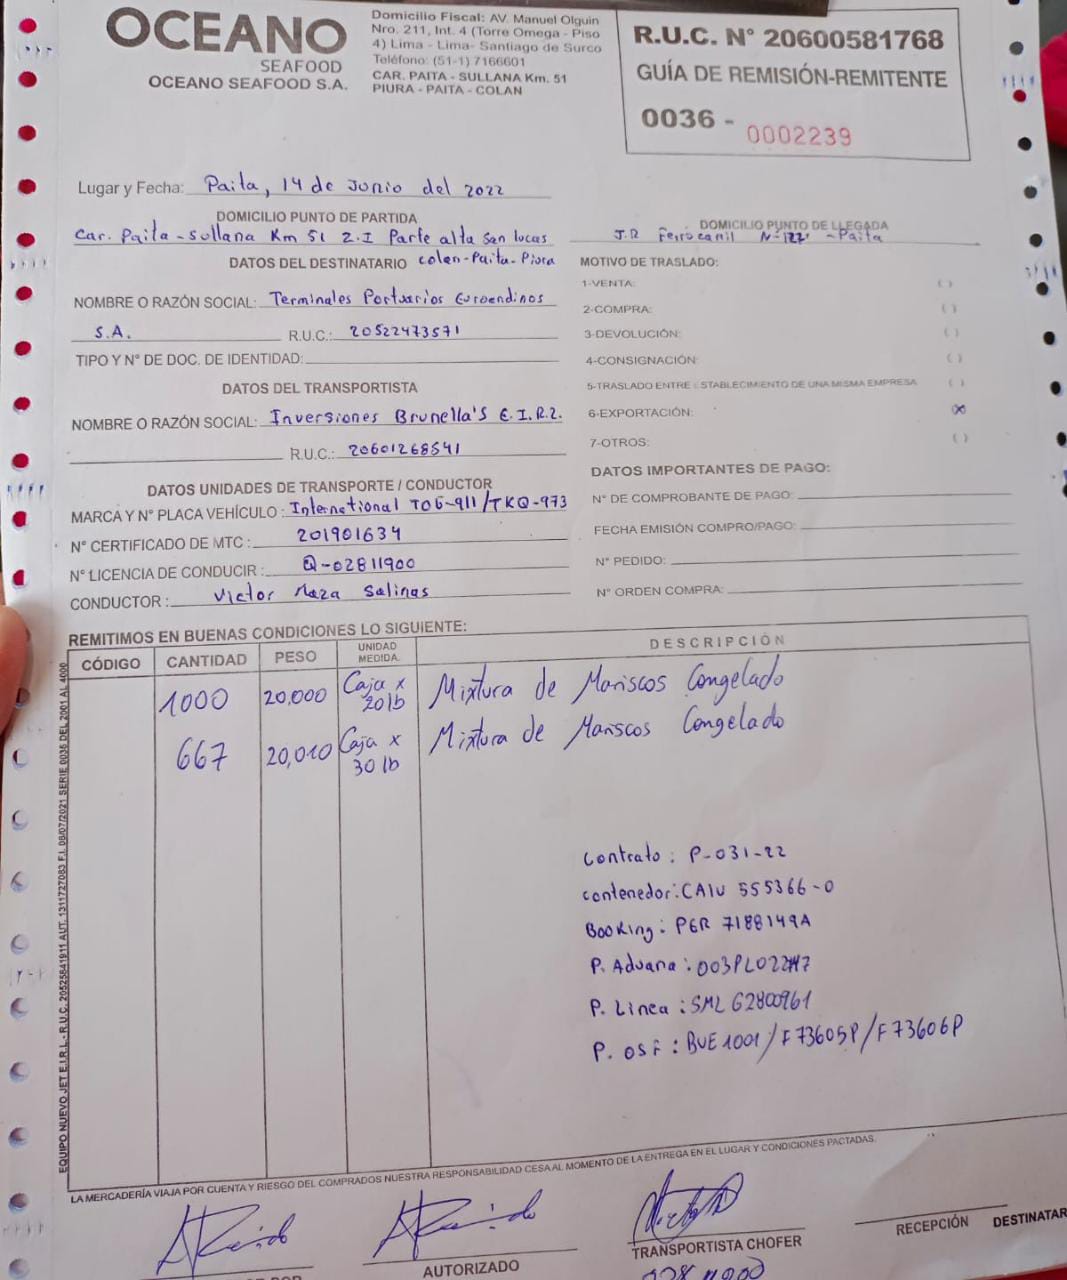 OCEANO
SEAFOOD
OCEANO SEAFOOD S.A.
Domicilio Fiscal: AV. Manuel Olguin
Nro. 211, Int. 4 (Torre Omega - Piso
4) Lima - Lima- Santiago de Surco
Teléfono: (51-1) 7166601
CAR. PAITA - SULLANA Km. 51
PIURA - PAITA - COLAN
R.U.C. N° 20600581768
GUÍA DE REMISIÓN-REMITENTE
0036 - 0002239
Lugar y Fecha: Paita, 14 de Junio del 2022
DOMICILIO PUNTO DE PARTIDA
Car. Paita - Sullana Km 51 Z.I Parte alta San Lucas
DOMICILIO PUNTO DE LLEGADA
J.R Ferrocarril - Paita
DATOS DEL DESTINATARIO Colan-Paita-Piura
NOMBRE O RAZÓN SOCIAL: Terminales Portuarios Euroandinos
S.A. R.U.C.: 20522473571
TIPO Y N° DE DOC. DE IDENTIDAD:
DATOS DEL TRANSPORTISTA
NOMBRE O RAZÓN SOCIAL: Inversiones Brunella's E.I.R.L.
R.U.C.: 20601268541
DATOS UNIDADES DE TRANSPORTE / CONDUCTOR
MARCA Y N° PLACA VEHÍCULO: International /TKQ-973
N° CERTIFICADO DE MTC: 201901634
N° LICENCIA DE CONDUCIR: Q-02811900
CONDUCTOR: Victor Maza Salinas
MOTIVO DE TRASLADO:
1-VENTA: ( )
2-COMPRA: ( )
3-DEVOLUCIÓN: ( )
4-CONSIGNACIÓN: ( )
5-TRASLADO ENTRE ESTABLECIMIENTO DE UNA MISMA EMPRESA ( )
6-EXPORTACIÓN: (X)
7-OTROS: ( )
DATOS IMPORTANTES DE PAGO:
N° DE COMPROBANTE DE PAGO:
FECHA EMISIÓN COMPRO/PAGO:
N° PEDIDO:
N° ORDEN COMPRA:
REMITIMOS EN BUENAS CONDICIONES LO SIGUIENTE:
CÓDIGO CANTIDAD PESO UNIDAD MEDIDA. DESCRIPCIÓN
1000 20,000 Caja x 20 lb Mixtura de Mariscos Congelado
667 20,010 Caja x 30 lb Mixtura de Mariscos Congelado
Contrato: P-031-22
Contenedor: CAIU 555366-0
Booking: PER 7188149A
P. Aduana:
P. Linea: SML G2800961
P. OSF: BVE1001/F73605P/F73606P
EQUIPO NUEVO JET E.I.R.L. - R.U.C. 20525841911 AUT. 1311727083 F.I. 08/07/2021 SERIE 0036 DEL 2001 AL 4000
LA MERCADERÍA VIAJA POR CUENTA Y RIESGO DEL COMPRADOS NUESTRA RESPONSABILIDAD CESA AL MOMENTO DE LA ENTREGA EN EL LUGAR Y CONDICIONES PACTADAS.
AUTORIZADO
TRANSPORTISTA CHOFER
RECEPCIÓN DESTINATAR